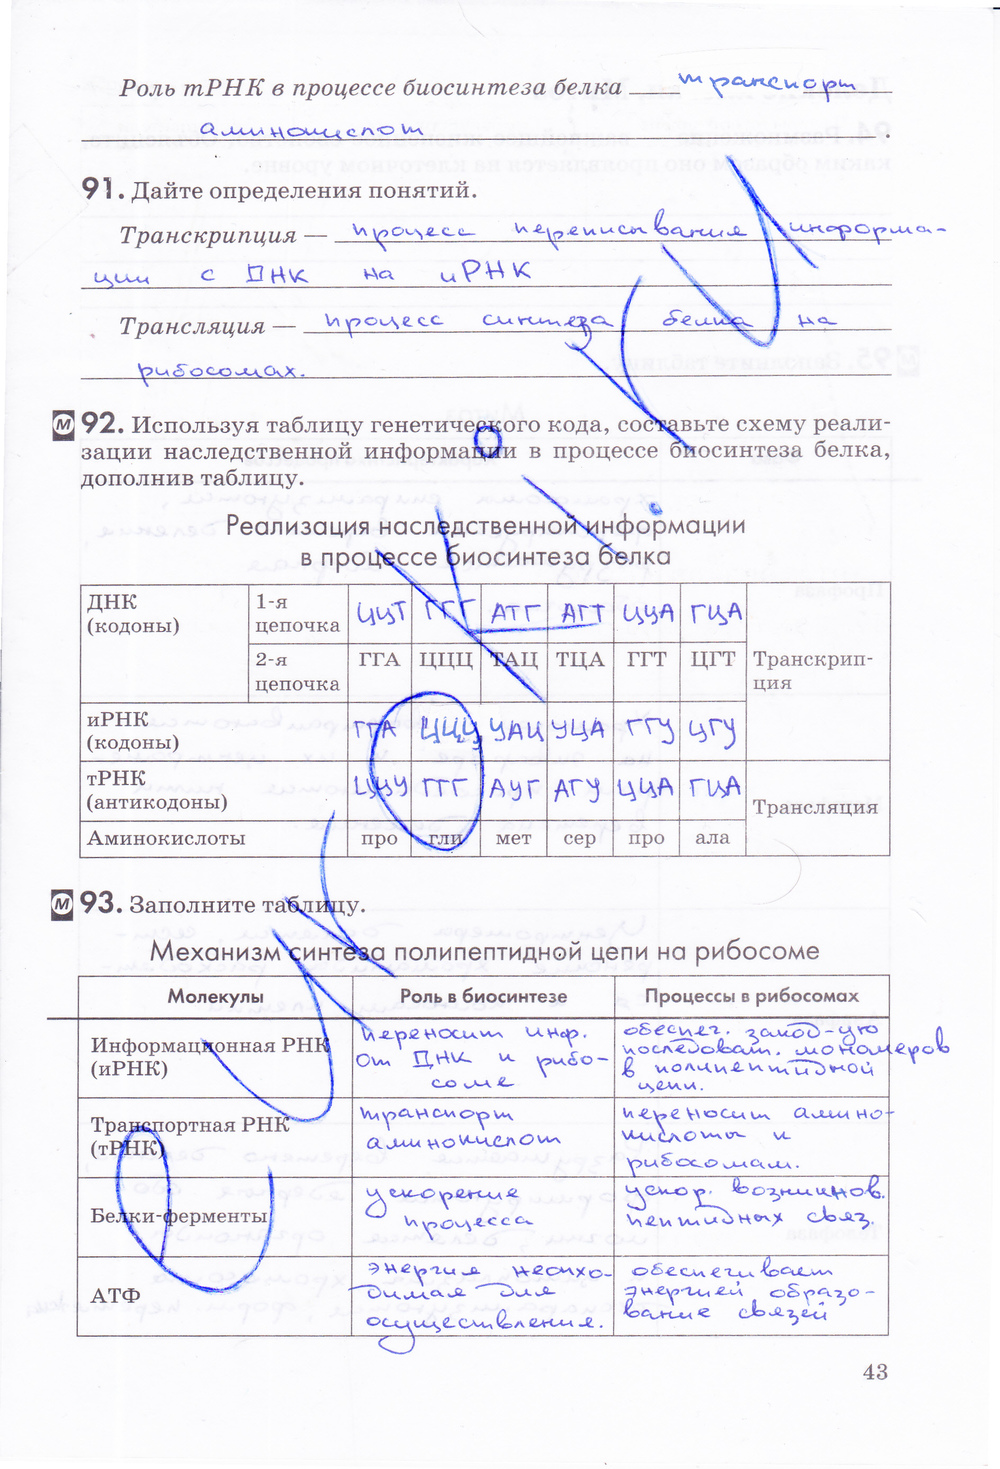 Роль тРНК в процессе биосинтеза белка транспорт
аминокислот.
91. Дайте определения понятий.
Транскрипция — процесс переписывания информа-
ции с ДНК на иРНК
Трансляция — процесс синтеза белка на
рибосомах.
М 92. Используя таблицу генетического кода, составьте схему реали-
зации наследственной информации в процессе биосинтеза белка,
дополнив таблицу.
Реализация наследственной информации
в процессе биосинтеза белка
ДНК (кодоны) 1-я цепочка ЦЦТ ГГГ АТГ АГТ ЦЦА ГЦА
2-я цепочка ГГА ЦЦЦ ТАЦ ТЦА ГГТ ЦГТ Транскрип-
ция
иРНК (кодоны) ГГА ЦЦЦ УАЦ УЦА ГГУ ЦГУ
тРНК (антикодоны) ЦЦУ ГГГ АУГ АГУ ЦЦА ГЦА Трансляция
Аминокислоты про гли мет сер про ала
М 93. Заполните таблицу.
Механизм синтеза полипептидной цепи на рибосоме
Молекулы Роль в биосинтезе Процессы в рибосомах
Информационная РНК
(иРНК)
переносит инф.
от ДНК к рибо-
соме
обеспеч. завод-ую
последоват. мономеров
в полипептидной
цепи.
Транспортная РНК
(тРНК)
транспорт
аминокислот
переносит амино-
кислоты к
рибосомам.
Белки-ферменты
ускорение
процесса
ускор. возникнов.
пептидных связ.
АТФ
энергия необхо-
димая для
осуществления.
обеспечивает
энергией образо-
вание связей
43